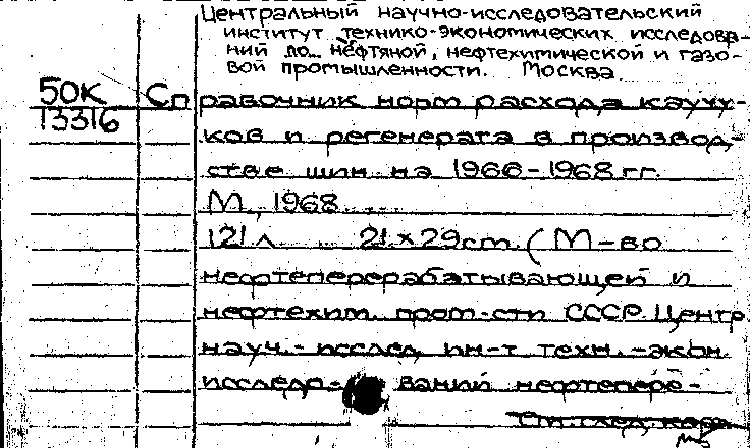 Центральный научно-исследовательский
институт технико-экономических исследова-
ний по нефтяной, нефтехимической и газо-
вой промышленности. Москва.
50К Справочник норм расхода каучу-
13316
ков и регенерата в производ-
стве шин на 1966-1968 гг.
М., 1968.
121 л. 21 x 29 cm. (М-во
нефтеперерабатывающей и
нефтехим. пром-сти СССР. Центр.
науч.-исслед. ин-т техн.-экон.
исследо- ваний нефтепере-
См. след. карт.